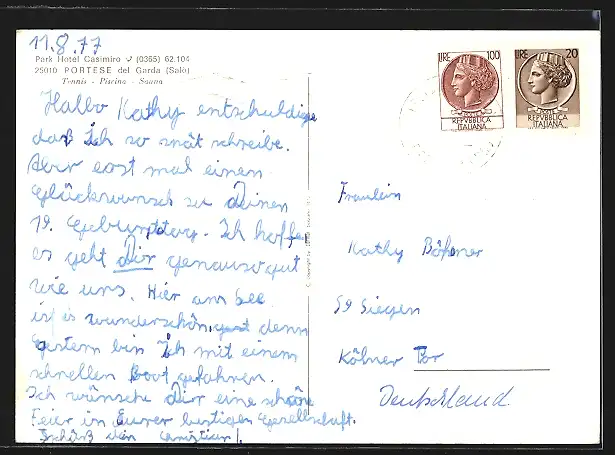 11.8.77
Park Hotel Casimiro (0365) 62.104
25010 PORTESE del Garda (Salò)
Tennis - Piscina - Sauna
Hallo Kathy entschuldige
daß Ich so spät schreibe.
Aber erst mal einen
Glückwunsch zu Deinen
19. Geburtstag. Ich hoffe
es geht Dir genauso gut
wie uns. Hier am See
ist es wunderschön, denn
Gestern bin Ich mit einem
schnellen Boot gefahren.
Ich wünsche Dir eine schöne
Feier in Eurer lustigen Gesellschaft.
Tschüß dein
LIRE 100
REPVBBLICA
ITALIANA
LIRE 20
REPVBBLICA
ITALIANA
Fräulein
Kathy
59 Siegen
Kölner Tor
Deutschland